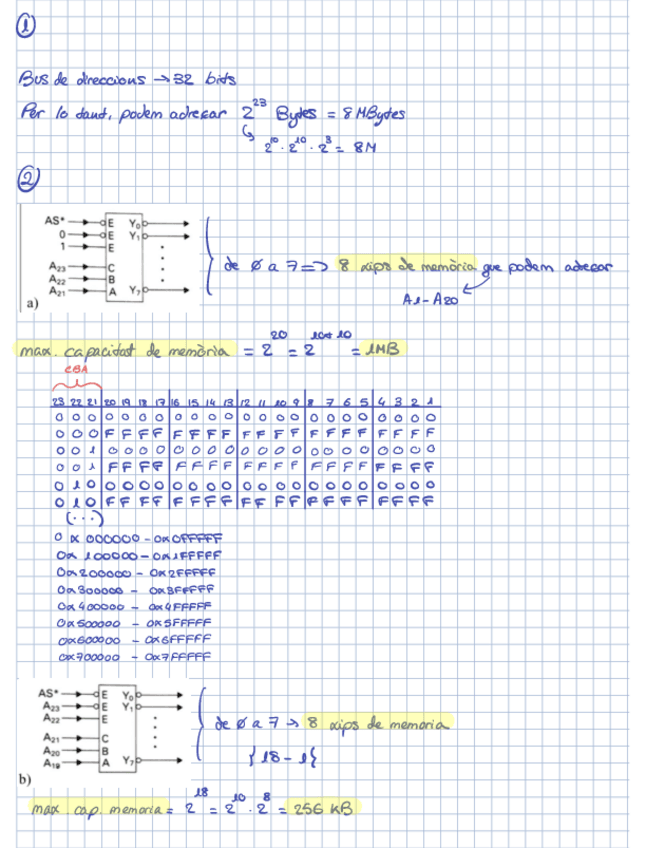 1
Bus de direccions → 32 bits
Per lo taut, podem adreçar 2^23 Bytes = 8 MBytes
2^10 · 2^10 · 2^3 = 8M
2
AS* E Y0
0 E Y1
1 E
A23 C
A22 B
A21 A Y7
a)
de 0 a 7 => 8 xips de memòria que podem adreçar
A1-A20
max. capacitat de memòria = 2^20 = 2^10+10 = 1MB
CBA
23 22 21 20 19 18 17 16 15 14 13 12 11 10 9 8 7 6 5 4 3 2 1
0 0 0 0 0 0 0 0 0 0 0 0 0 0 0 0 0 0 0 0 0 0 0
0 0 0 F F F F F F F F F F F F F F F F F F F F
0 0 1 0 0 0 0 0 0 0 0 0 0 0 0 0 0 0 0 0 0 0 0
0 0 1 F F F F F F F F F F F F F F F F F F F F
0 1 0 0 0 0 0 0 0 0 0 0 0 0 0 0 0 0 0 0 0 0 0
0 1 0 F F F F F F F F F F F F F F F F F F F F
(...)
0x000000 - 0x0FFFFF
0x100000 - 0x1FFFFF
0x200000 - 0x2FFFFF
0x300000 - 0x3FFFFF
0x400000 - 0x4FFFFF
0x500000 - 0x5FFFFF
0x600000 - 0x6FFFFF
0x700000 - 0x7FFFFF
AS* E Y0
A23 E Y1
A22 E
A21 C
A20 B
A19 A Y7
b)
de 0 a 7 → 8 xips de memoria
{18-1}
max. cap. memoria = 2^18 = 2^10 · 2^8 = 256 KB